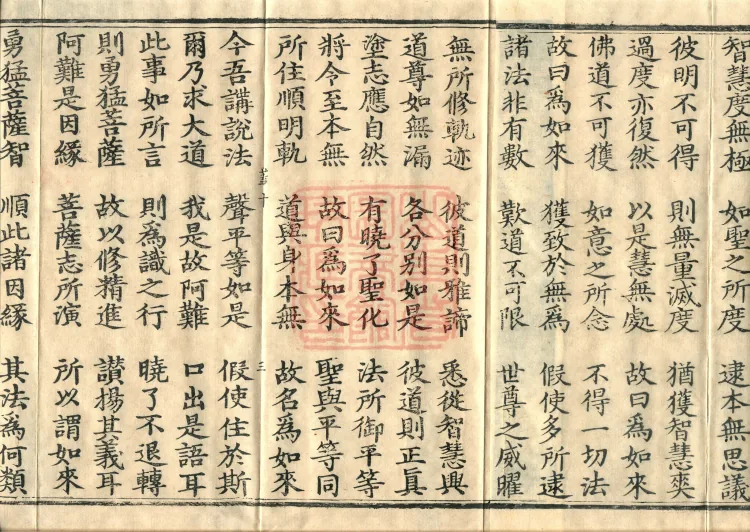 智慧度無極 如聖之所度 逮本無思議
彼明不可得 則無量滅度 猶獲智慧奕
過度亦復然 以是慧無處 故曰為如來
佛道不可獲 如意之所念 不得一切法
故曰為如來 獲致於無為 假使多所逮
諸法非有數 歎道不可限 世尊之威曜
無所修軌迹 彼道則雅諦 悉從智慧興
道尊如無漏 各分別如是 彼道則正真
塗志應自然 有曉了聖化 法所御平等
將令至本無 故曰為如來 聖與平等同
所住順明軌 道與身本無 故名為如來
今吾講說法 聲平等如是 假使住於斯
爾乃求大道 我是故阿難 口出是語耳
此事如所言 則為識之行 曉了不退轉
則勇猛菩薩 故以修精進 讚揚其義耳
阿難是因緣 菩薩志所演 所以謂如來
勇猛菩薩智 順此諸因緣 其法為何類